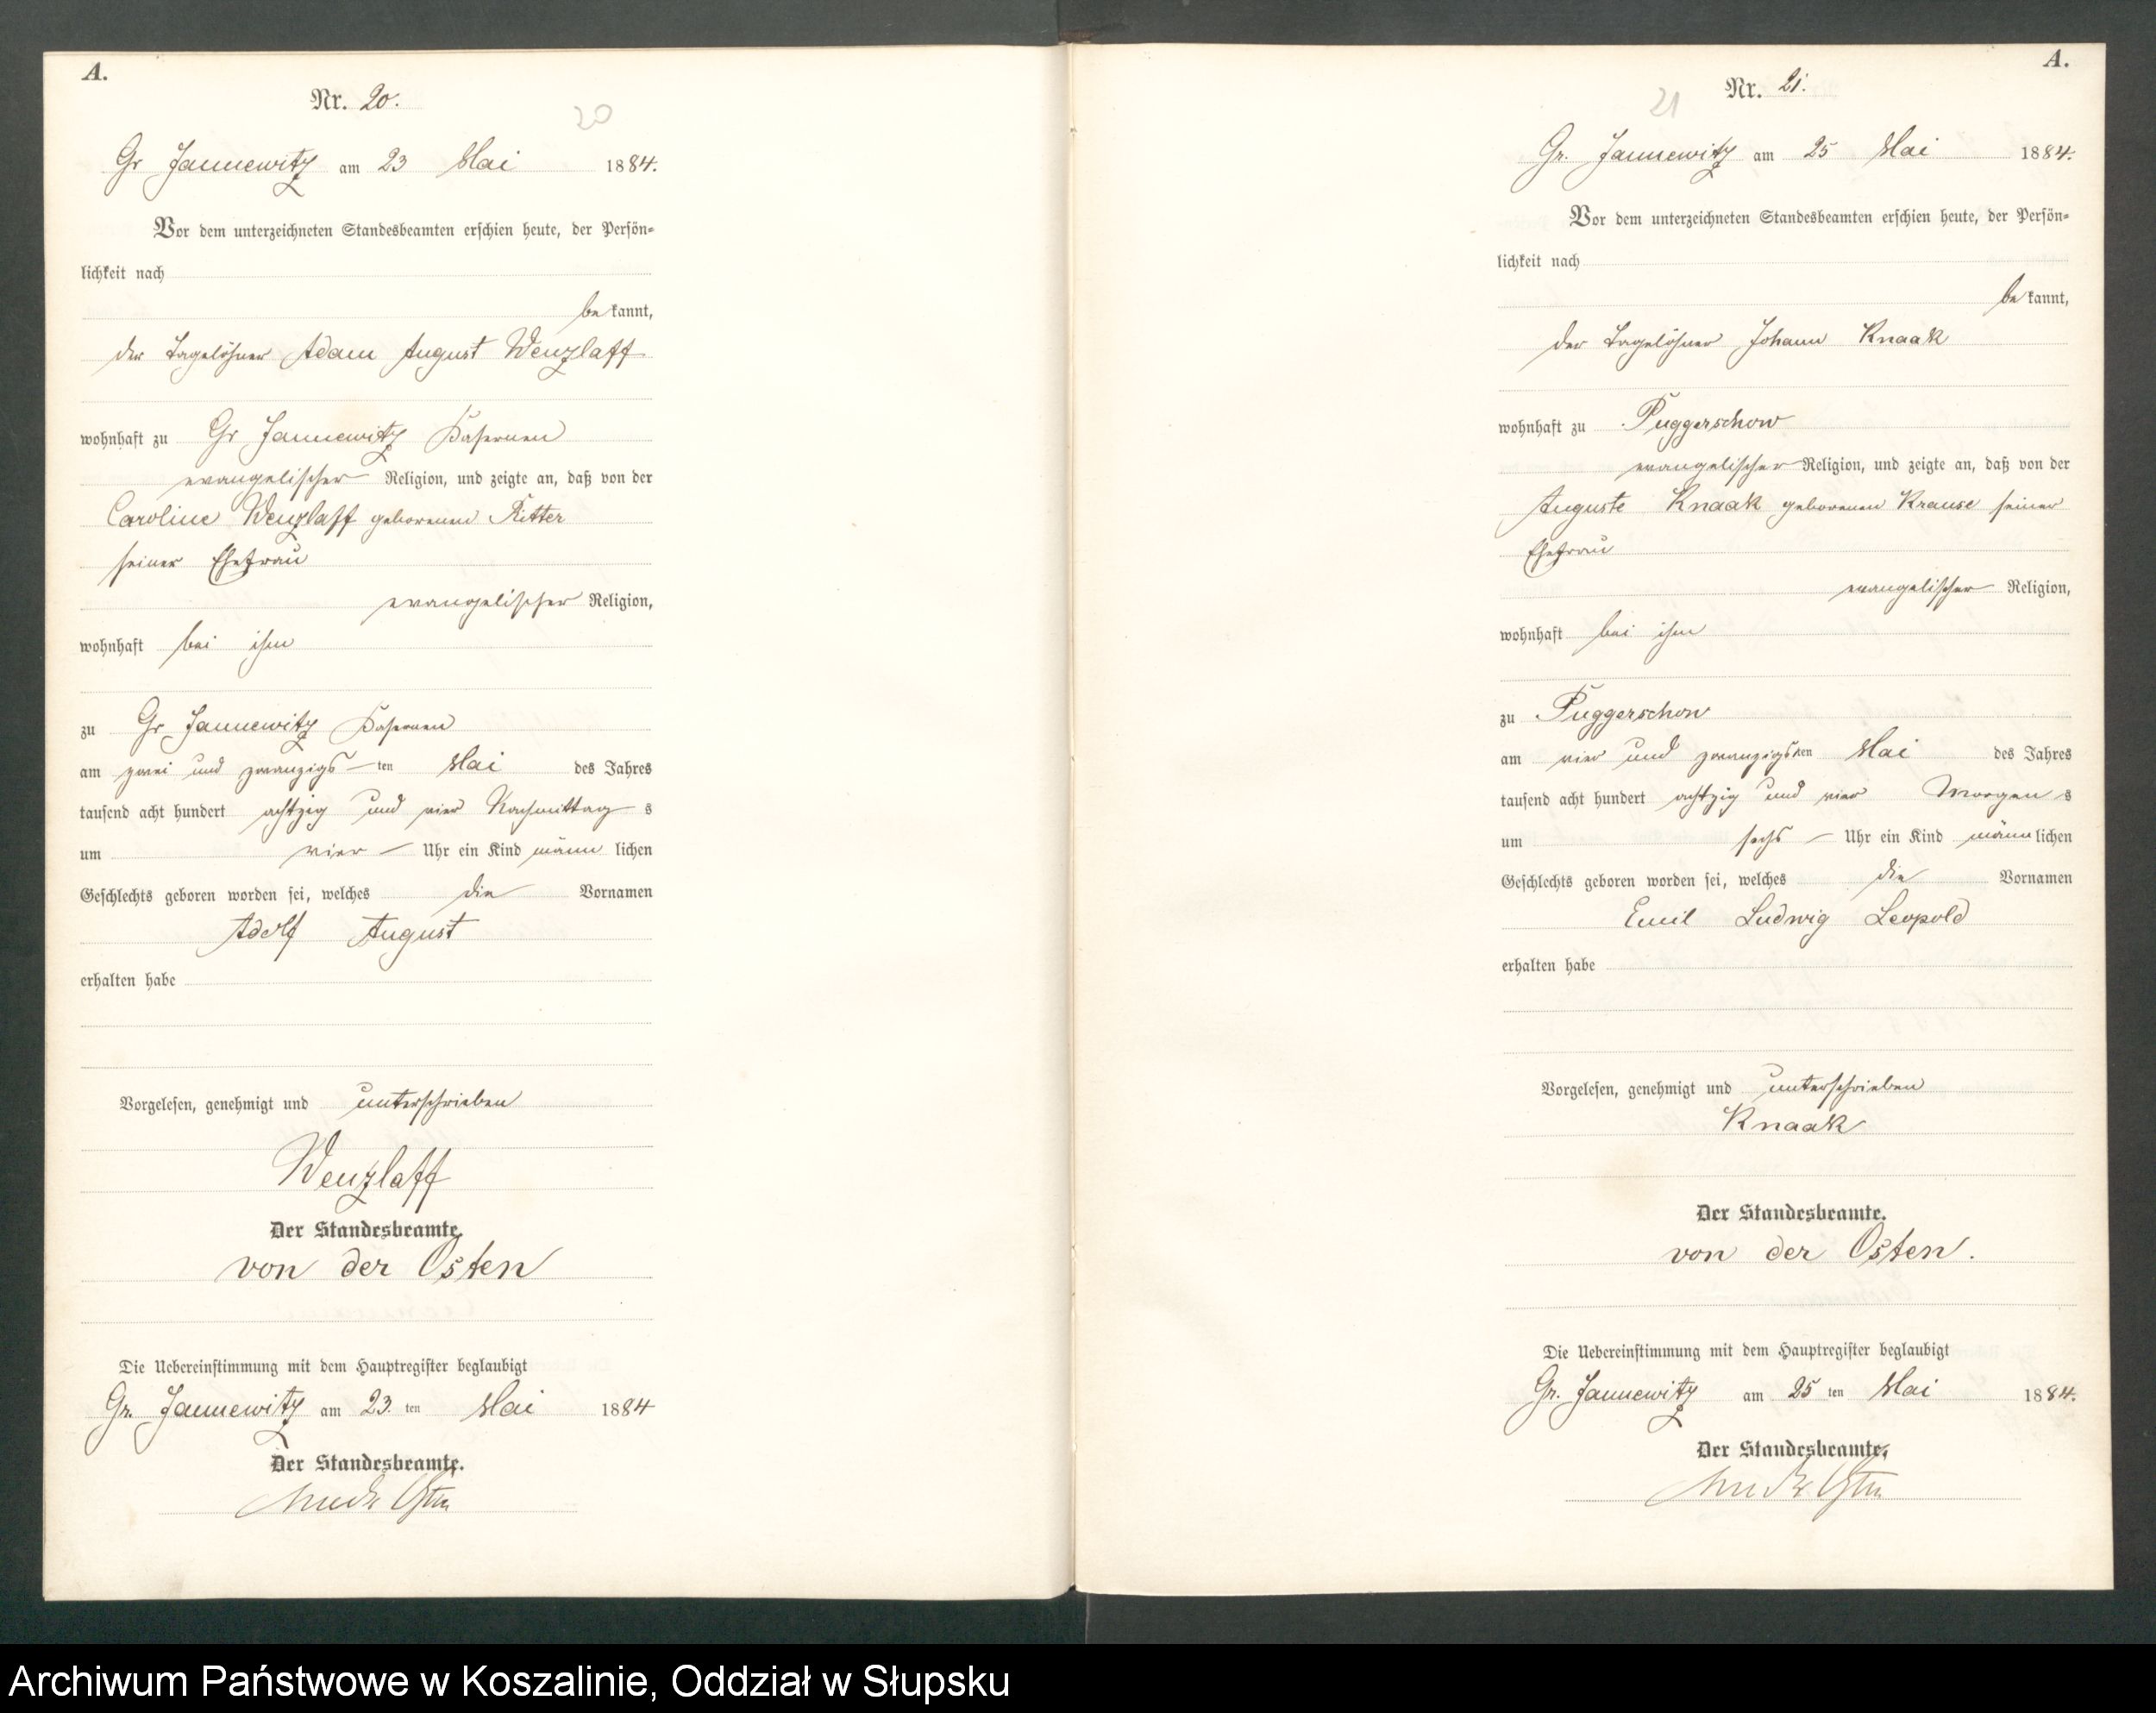 A.
Nr. 20.
20
Gr Jannewitz am 23 Mai 1884.
Vor dem unterzeichneten Standesbeamten erschien heute, der Persön-
lichkeit nach
be kannt,
der Tagelöhner Adam August Wenzlaff
wohnhaft zu Gr Jannewitz Kasernen
evangelischer Religion, und zeigte an, daß von der
Caroline Wenzlaff geborenen Ritter
seiner Ehefrau
evangelischer Religion,
wohnhaft bei ihm
zu Gr Jannewitz Kasernen
am zwei und zwanzigs ten Mai des Jahres
tausend acht hundert achtzig und vier Nachmittag s
um vier Uhr ein Kind männ lichen
Geschlechts geboren worden sei, welches die Vornamen
Adolf August
erhalten habe
Vorgelesen, genehmigt und unterschrieben
Wenzlaff
Der Standesbeamte.
von der Osten
Die Uebereinstimmung mit dem Hauptregister beglaubigt
Gr. Jannewitz am 23. ten Mai 1884
Der Standesbeamte.
von der Osten
A.
Nr. 21.
21
Gr. Jannewitz am 25 Mai 1884.
Vor dem unterzeichneten Standesbeamten erschien heute, der Persön-
lichkeit nach
be kannt,
der Tagelöhner Johann Knaak
wohnhaft zu Puggerschow
evangelischer Religion, und zeigte an, daß von der
Auguste Knaak geborenen Krause seiner
Ehefrau
evangelischer Religion,
wohnhaft bei ihm
zu Puggerschow
am vier und zwanzigs ten Mai des Jahres
tausend acht hundert achtzig und vier Morgen s
um sechs Uhr ein Kind männ lichen
Geschlechts geboren worden sei, welches die Vornamen
Emil Ludwig Leopold
erhalten habe
Vorgelesen, genehmigt und unterschrieben
Knaak
Der Standesbeamte.
von der Osten.
Die Uebereinstimmung mit dem Hauptregister beglaubigt
Gr. Jannewitz am 25 ten Mai 1884.
Der Standesbeamte.
von der Osten
Archiwum Państwowe w Koszalinie, Oddział w Słupsku